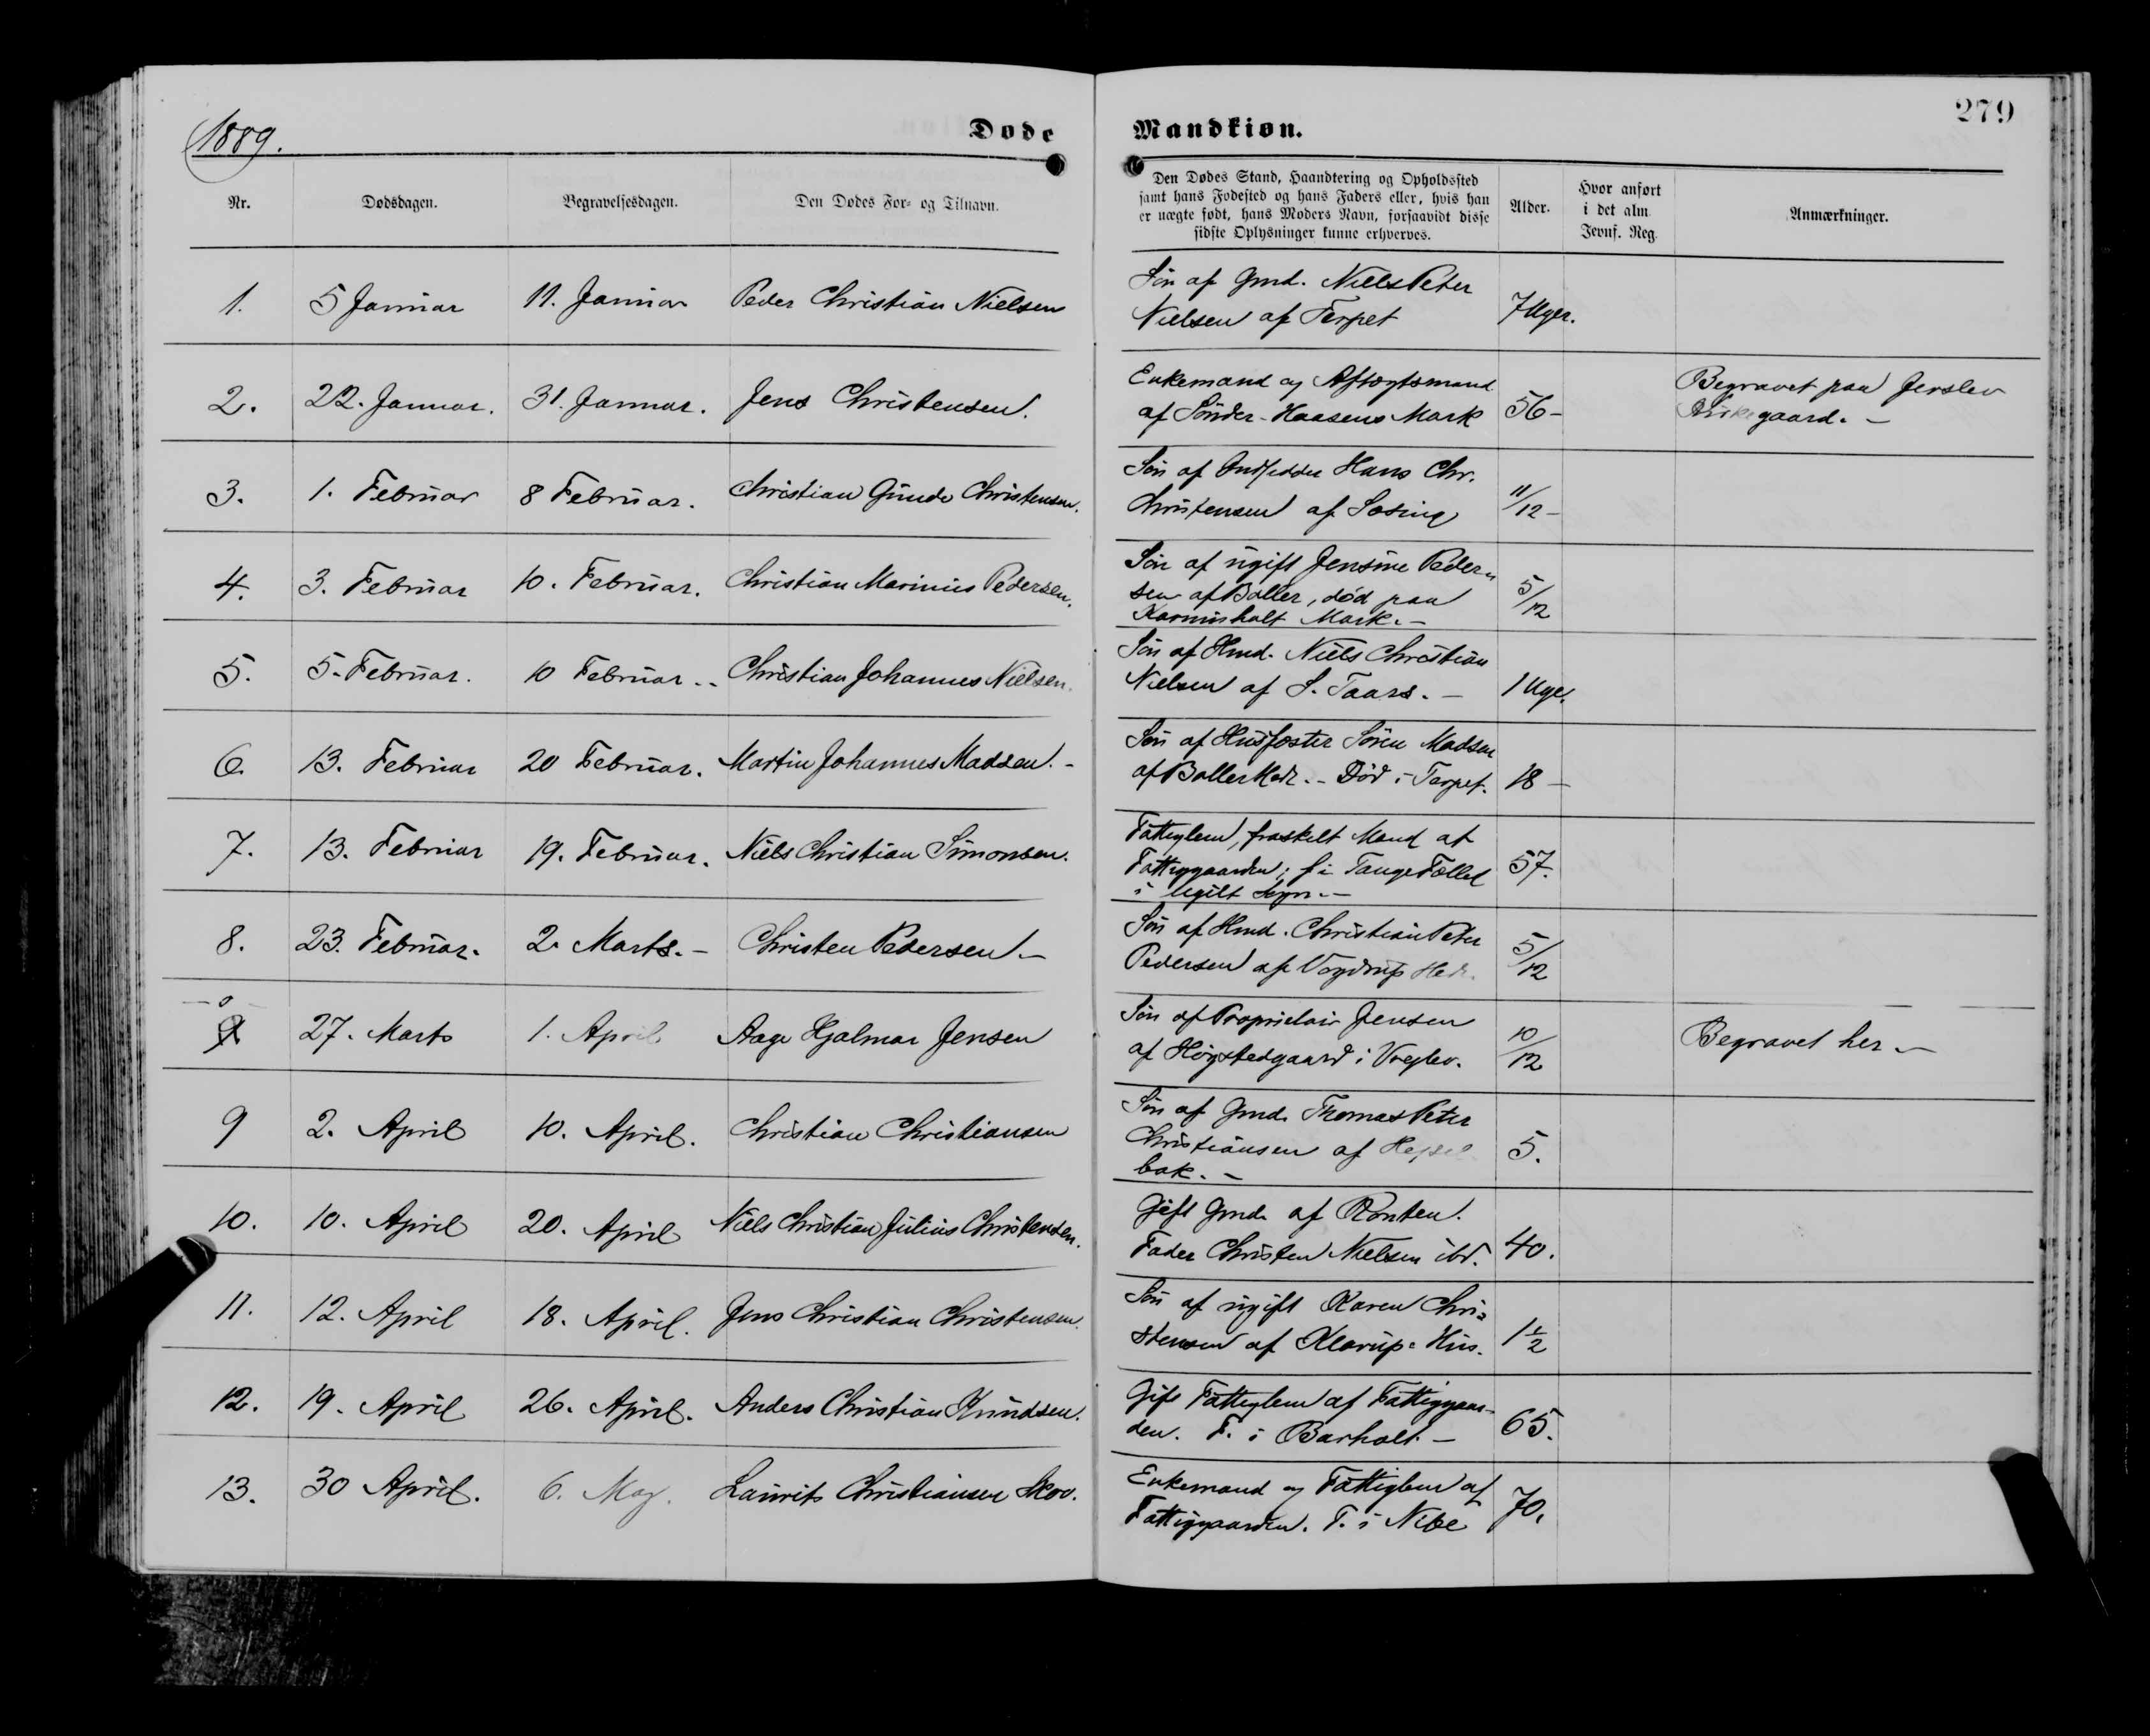 1889.
Døde
Mandkiøn.
279
Nr.
Dødsdagen.
Begravelsesdagen.
Den Dødes For- og Tilnavn.
Den Dødes Stand, Haandtering og Opholdssted
samt hans Fødested og hans Faders eller, hvis han
er uægte født, hans Moders Navn, forsaavidt disse
sidste Oplysninger kunne erhverves.
Alder.
Hvor anført
i det alm
Jevnf. Reg.
Anmærkninger.
1. 5 Januar 11. Januar Peder Christian Nielsen
Søn af Gmd. Niels Peter
Nielsen af Terpet 7 Uger.
2. 22. Januar. 31. Januar. Jens Christensen.
Enkemand og Aftægtsmand
af Sønder-Haasens Mark 56-
Begravet paa Jerslev
Kirkegaard. -
3. 1. Februar 8 Februar. Christian Gunde Christensen.
Søn af Indsidder Hans Chr.
Christensen af Sæsing 11/12 -
4. 3. Februar 10. Februar. Christian Marinus Pedersen.
Søn af ugift Jensine Peder-
sen af Baller, død paa
Karmisholt Mark. - 5/12
5. 5. Februar. 10 Februar. - Christian Johannes Nielsen.
Søn af Hmd. Niels Christian
Nielsen af S. Taars. - 1 Uge.
6. 13. Februar 20 Februar. Martin Johannes Madsen. -
Søn af Husfæster Søren Madsen
af Baller Hede. - Død i Terpet. 18 -
7. 13. Februar 19. Februar. Niels Christian Simonsen.
Fattiglem, fraskilt Mand af
Fattiggaarden; f. i Tange Fælled
i Ugilt Sogn. - 57.
8. 23. Februar. 2. Marts. - Christen Pedersen. -
Søn af Hmd. Christian Peter
Pedersen af Vogdrup Hede. 5/12
0
27. Marts 1. April Aage Hjalmar Jensen
Søn af Proprietair Jensen
af Høgstedgaard i Vreglev. 10/12
Begravet her -
9 2. April 10. April. Christian Christiansen
Søn af Gmd. Thomas Peter
Christiansen af Hessel-
bæk. - 5.
10. 10. April 20. April Niels Christian Julius Christensen.
Gift Gmd. af Rønten.
Fader Christen Nielsen ibd. 40.
11. 12. April 18. April. Jens Christian Christensen.
Søn af ugift Karen Chri-
stensen af Klarup-Hus. 1½
12. 19. April 26. April. Anders Christian Knudsen.
Gift Fattiglem af Fattiggaar-
den. F. i Barholt. - 65.
13. 30 April. 6. May. Laurits Christiansen Skov.
Enkemand og Fattiglem af
Fattiggaarden. F. i Nibe 70.